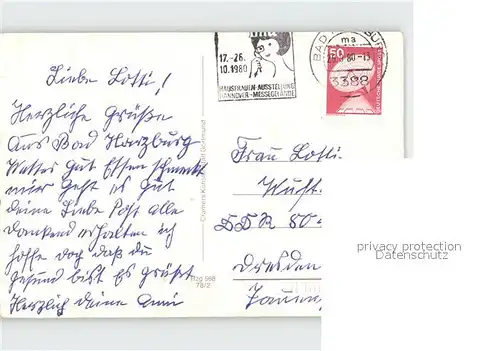 Liebe Lotti!
Herzliche Grüße
aus Bad Harzburg
Wetter gut Essen schmeckt
mir geht es gut
deine Liebe Post alle
dankend erhalten ich
hoffe doch daß du
gesund bist Es grüßt
Herzlich deine Anni
17.-26.
10.1980
HAUSFRAUEN-AUSSTELLUNG
HANNOVER-MESSEGELÄNDE
BAD
ma
80-13
3388
50
Cramers Kunst Dortmund
Rzg 998
78/2
Frau Lotti
Wust
DDR 80
Dresden
privacy protection
Datenschutz